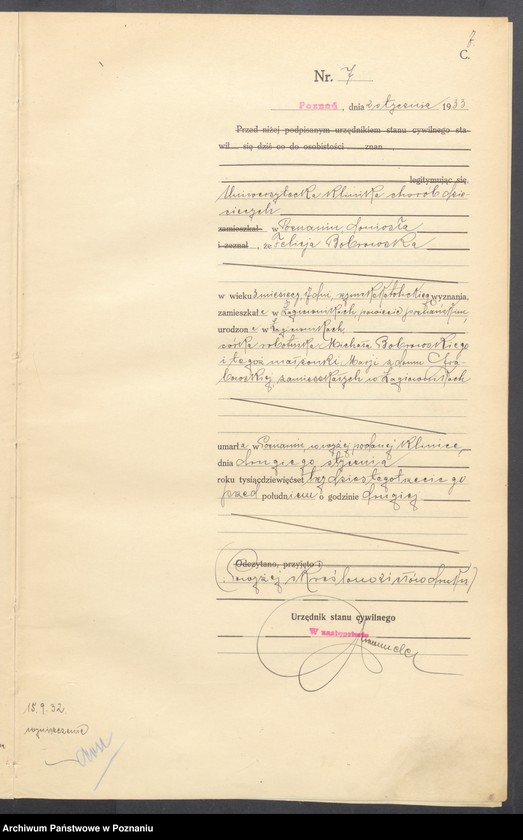 8.
C.
Nr. 7
Poznań, dnia 3 stycznia 1933
Przed niżej podpisanym urzędnikiem stanu cywilnego sta-
wił się dziś co do osobistości znan
legitymując się
Uniwersytecka Klinika chorób dzie-
cięcych
zamieszkał w Poznaniu, doniosła
i zeznał, że Felicja Bobrowska
w wieku 3 miesięcy, 7 dni, rzymsko katolickiego wyznania,
zamieszkała w Łagiewnikach, powiecie poznańskim,
urodzona w Łagiewnikach,
córka robotnika Michała Bobrowskiego
i tegoż małżonki Marji z domu Gra-
bowskiej, zamieszkałych w Łagiewnikach
umarła w Poznaniu, w wyżej podanej klinice,
dnia drugiego stycznia
roku tysiącdziewięćset trzydziestego trzeciego
przed południem o godzinie drugiej
Odczytano, przyjęto i
(Powyżej skreślono słów druku)
Urzędnik stanu cywilnego
W zastępstwie
15.9.32
Archiwum Państwowe w Poznaniu